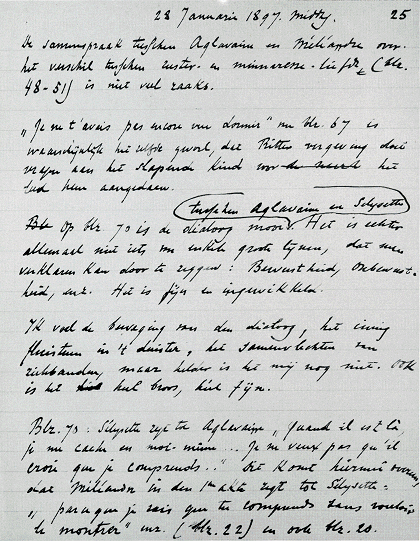 28 Januari 1897. Middg. 25
De samenspraak tusschen Aglavaine en Méléandre over
het verschil tusschen zuster- en minnaresse-liefde (blz.
48-51) is niet veel zaaks.
„Je ne t'avais pas encore vu dormir" en blz. 67 is
waarschijnlijk hetzelfde gevoel, dat Ritter vergeving doet
vragen aan het slapende kind voor de het
leed hem aangedaan.
tusschen Aglavaine en Selysette
Blz Op blz 70 is de dialoog mooi. Het is echter
allemaal niet iets in enkele groote lijnen, dat men
verklaren kan door te zeggen: Bewustheid, Onbewust-
heid, enz. Het is fijn en ingewikkeld.
Ik voel de beweging van den dialoog, het innig
fluisteren in 't duister, het samenvlechten van
zielbanden, maar helder is het mij nog niet. Ook
is het heel broos, heel fijn.
Blz. 70: Selysette zegt tot Aglavaine „Quand il est là,
je me cache en moi-même... Je ne veux pas qu'il
croie que je comprends.." Dit komt hiermee overeen,
dat Méléandre in den 1en akte zegt tot Selysette:
„parce que je sais que tu comprends sans vouloir
le montrer" enz. (blz. 22) en ook blz. 20.